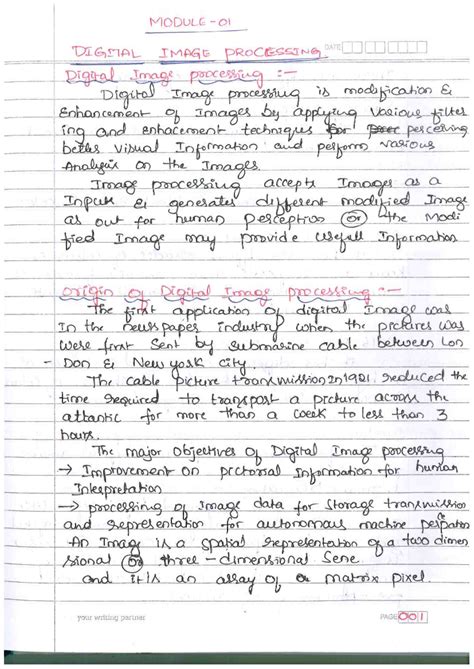 MODULE-01
DIGITAL IMAGE PROCESSING DATE
Digital Image processing :-
Digital Image processing is modification &
Enhancement of Images by applying various filter
ing and enhacement techniques for perceiving
better visual Information and perform various
Analysis on the Images.
Image processing accepts Images as a
Input & generates different modified Image
as out for human perception or the Modi
fied Image may provide usefull Information
origin of Digital Image processing :-
The first application of digital Image was
In the newspaper industry when the pictures was
were first Sent by submarine cable between Lon
Don & New york city.
The cable picture transmission in 1921, reduced the
time required to transport a picture across the
atlantic for more than a week to less than 3
hours.
The major objectives of Digital Image processing
→ Improvement on pictorial Information for human
Interpretation
→ processing of Image data for storage transmission
and representation for autonomous machine
An Image is a spatial representation of a two dimen
sional or three-dimensional Sene
and it is an array of a matrix pixel.
your writing partner PAGE 001